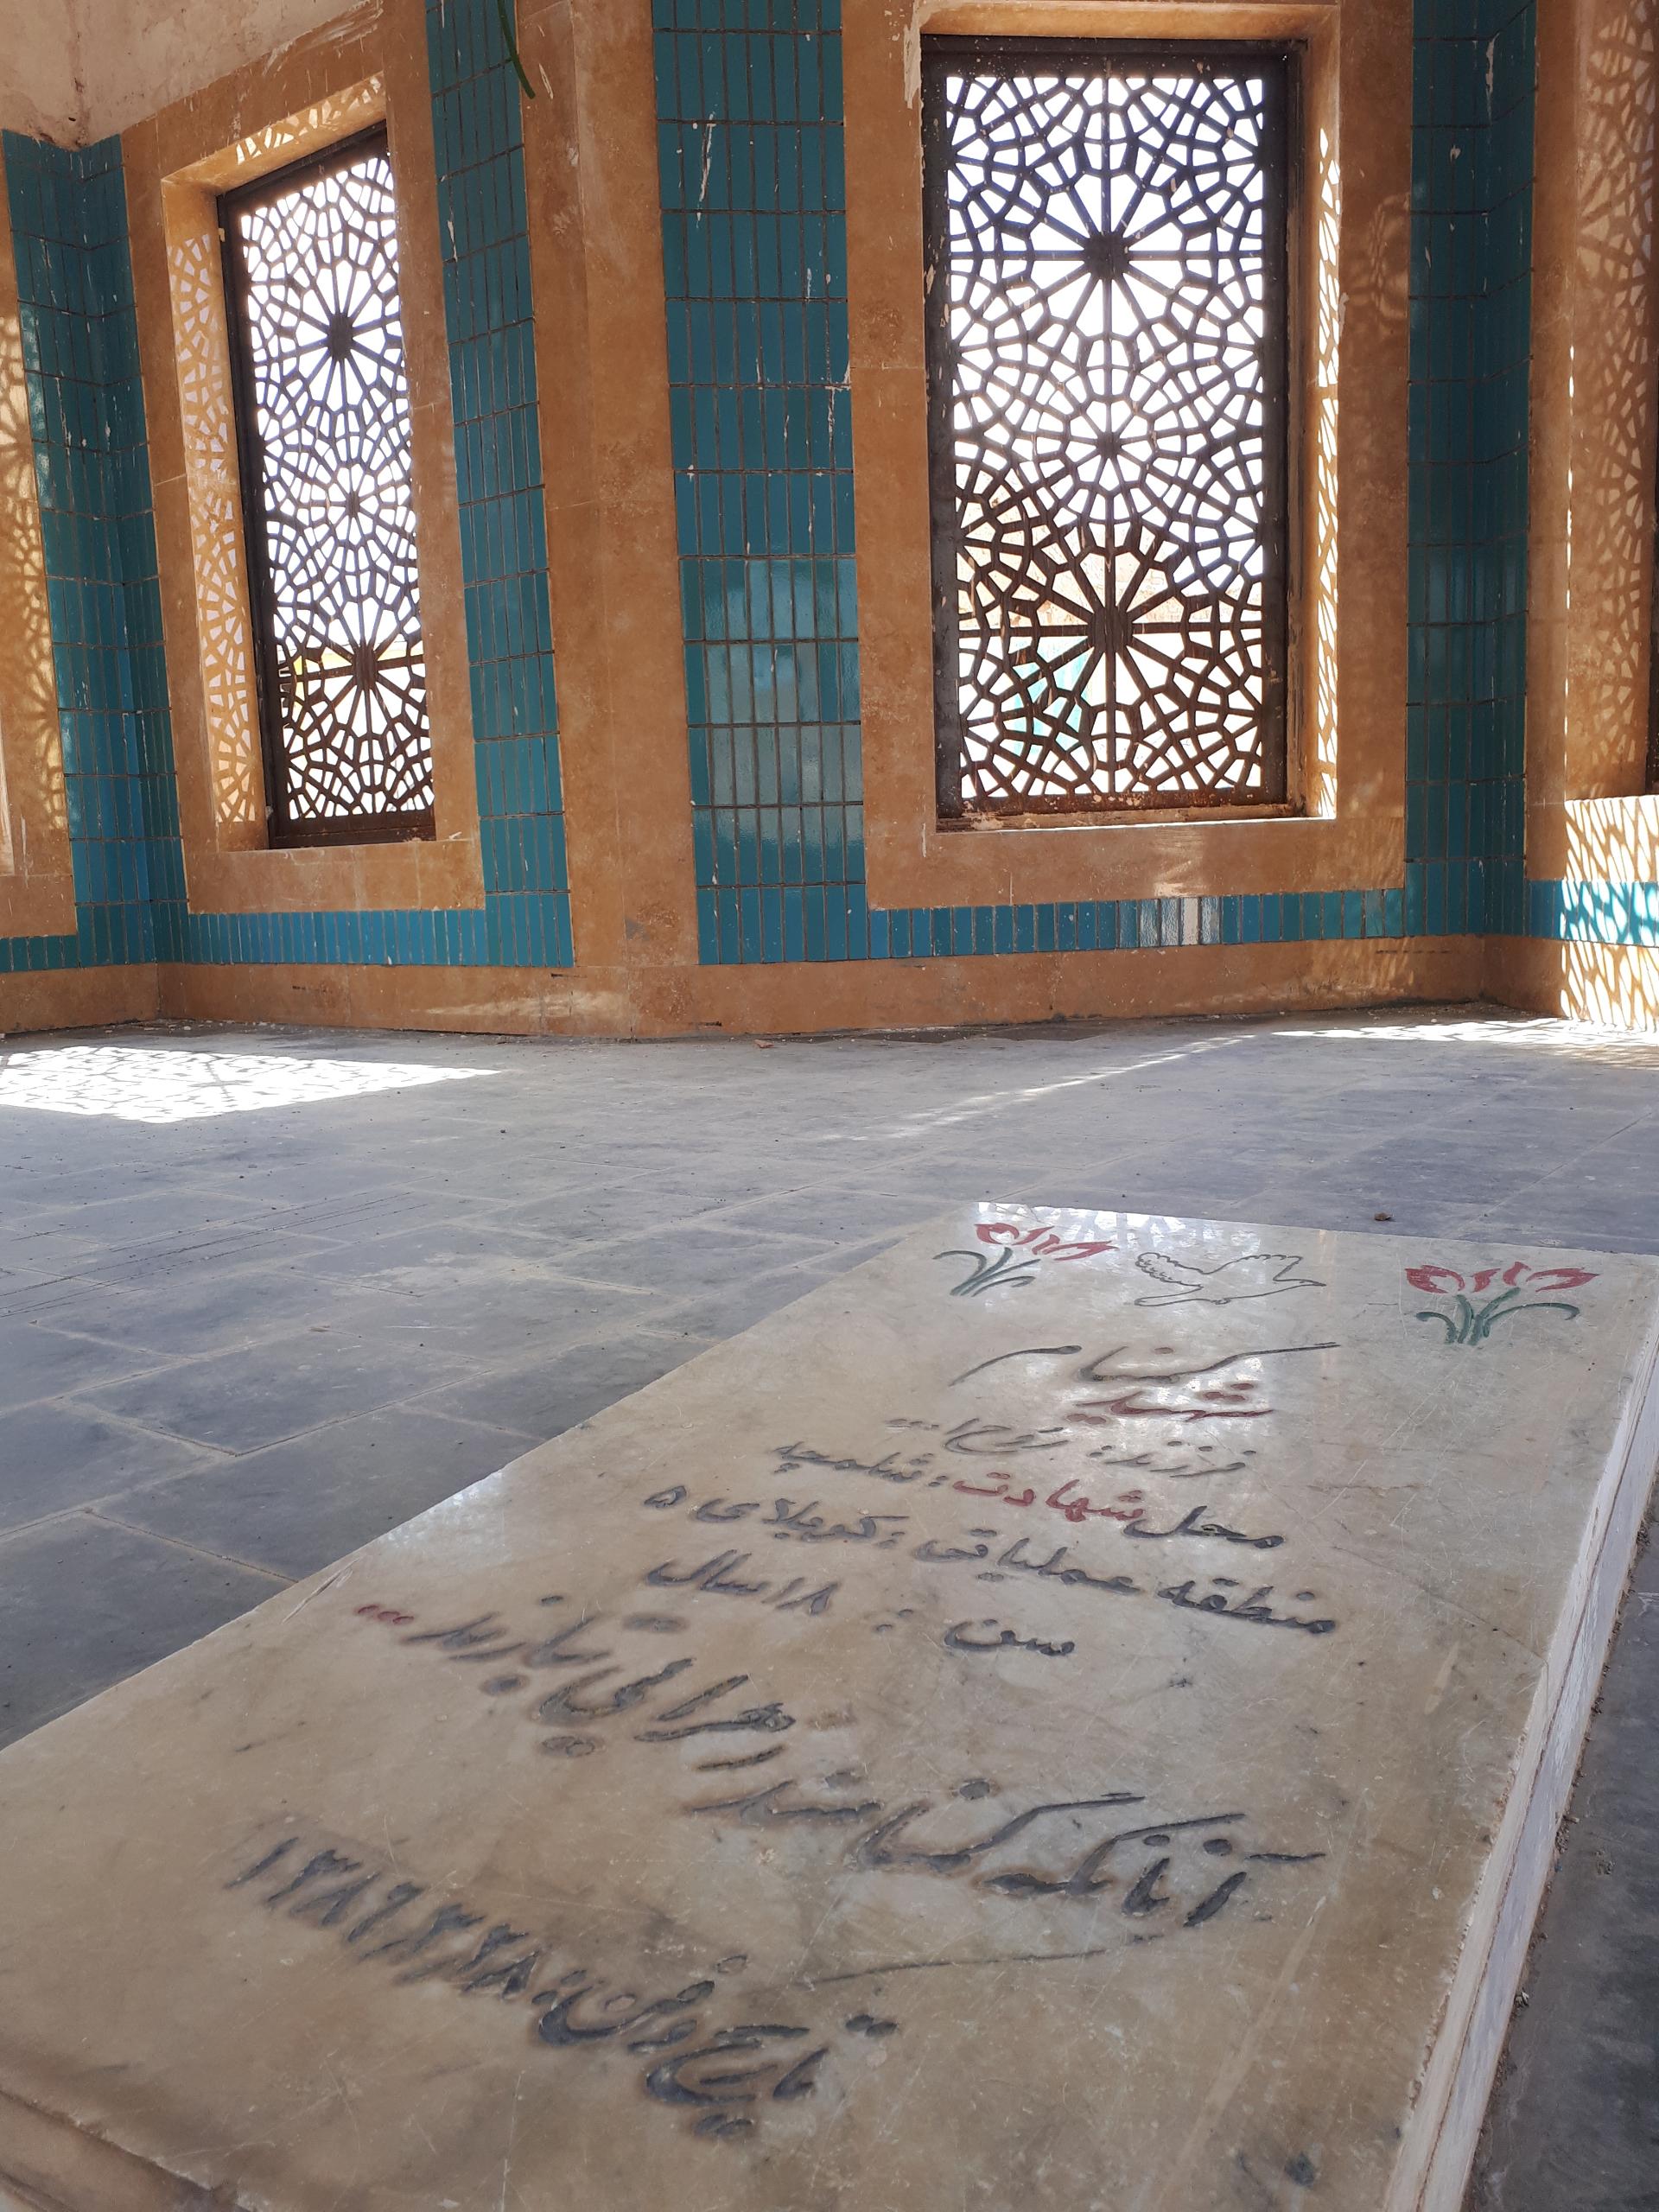 شهید گمنام
فرزند: روح ا...
محل شهادت: شلمچه
منطقه عملیاتی: کربلای ۵
سن: ۱۸ سال
آنانکه گمنامند در راه
تاریخ دفن: ۱۳۸۶/۳/۲۸